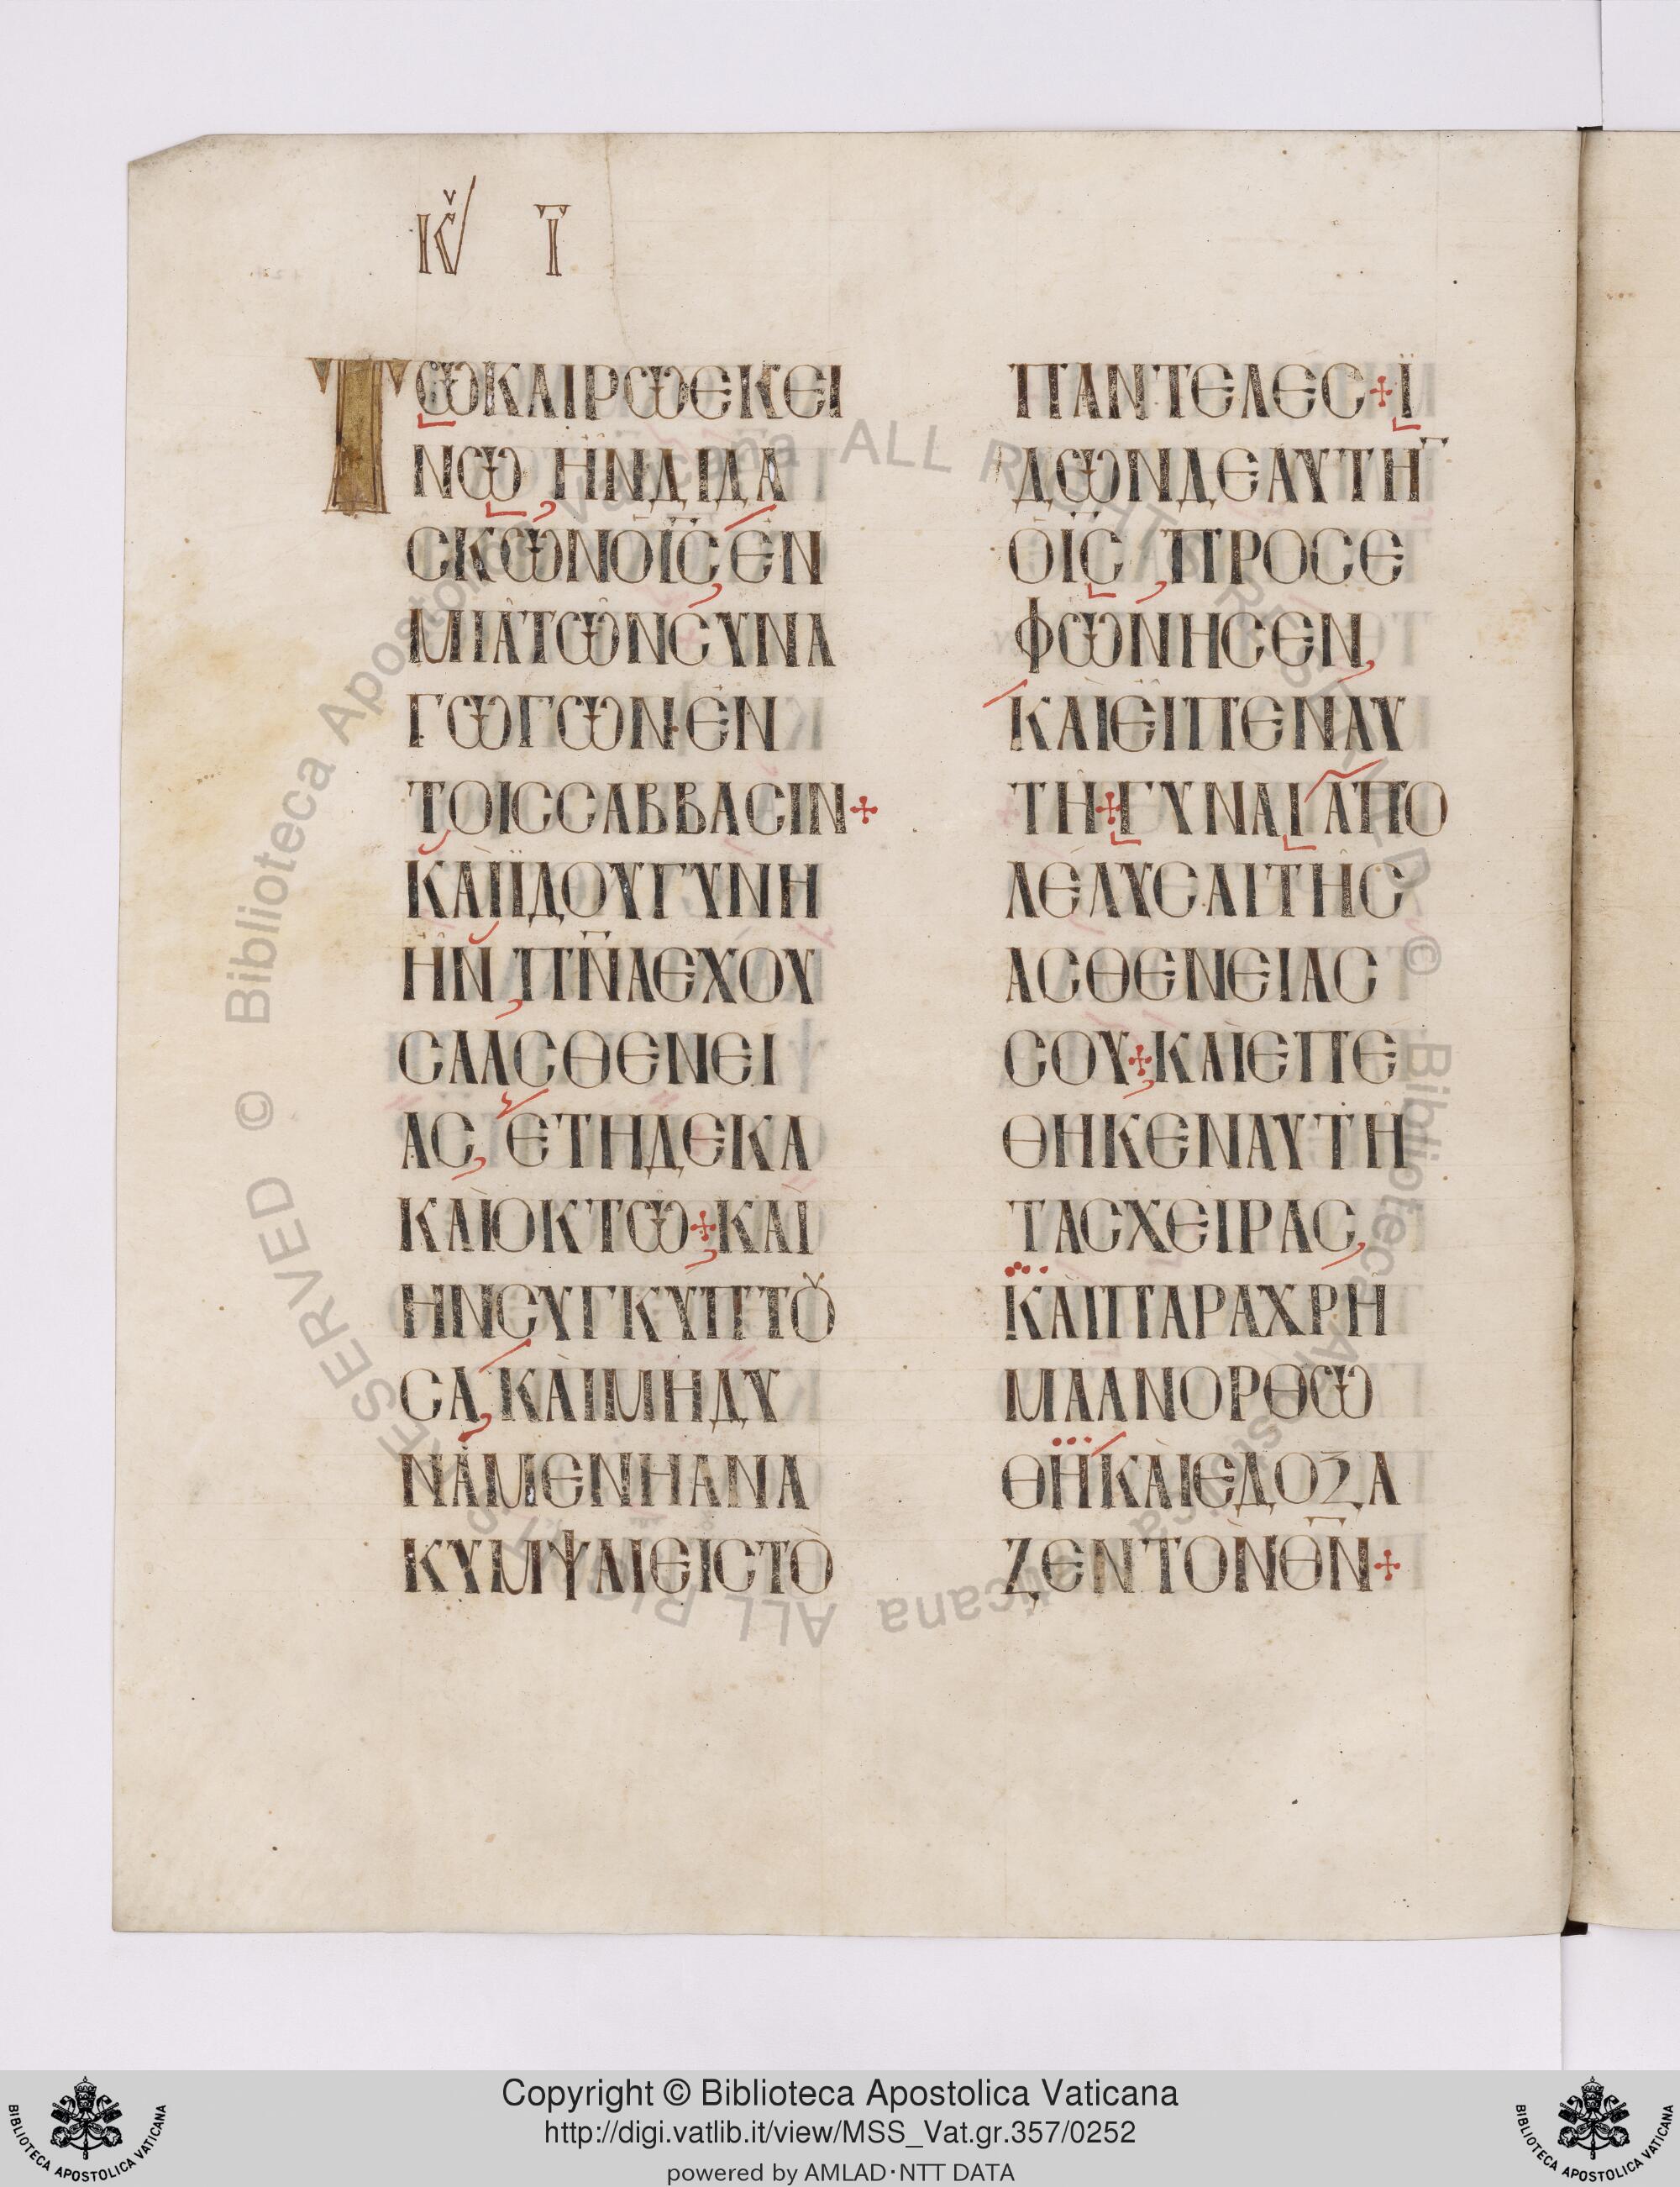 Κ̆/ Ι̅
ΤΩΚΑΙΡΩΕΚΕΙ
ΝΩ, ΗΝΔΙΔΑ
ΣΚΩΝΟΙ̅Σ̅, ΕΝ
ΜΙΑΤΩΝΣΥΝΑ
ΓΩΓΩΝ·ΕΝ
ΤΟΙΣΣΑΒΒΑΣΙΝ+
ΚΑΙΪΔΟΥΓΥΝΗ
ΗΝ, ΠΝ̅ΑΕΧΟΥ
ΣΑΑΣΘΕΝΕΙ
ΑΣ, ΕΤΗΔΕΚΑ
ΚΑΙΟΚΤΩ+ΚΑΙ
ΗΝΣΥΓΚΥΠΤΟΥ
ΣΑ, ΚΑΙΜΗΔΥ
ΝΑΜΕΝΗΑΝΑ
ΚΥΜΨΑΙΕΙΣΤΟ
ΠΑΝΤΕΛΕΣ+Ϊ
ΔΩΝΔΕΑΥΤΗ̅
ΟΙ̅Σ̅, ΠΡΟΣΕ
ΦΩΝΗΣΕΝ,
ΚΑΙΕΙΠΕΝΑΥ
ΤΗ+ΓΥΝΑΙΑΠΟ
ΛΕΛΥΣΑΙΤΗΣ
ΑΣΘΕΝΕΙΑΣ
ΣΟΥ+ΚΑΙΕΠΕ
ΘΗΚΕΝΑΥΤΗ
ΤΑΣΧΕΙΡΑΣ,
ΚΑΙΠΑΡΑΧΡΗ
ΜΑΑΝΟΡΘΩ
ΘΗΚΑΙΕΔΟΞΑ
ΖΕΝΤΟΝΘ̅Ν̅+
© Biblioteca Apostolica Vaticana ALL RIGHTS RESERVED © Biblioteca Apostolica Vaticana ALL RIGHTS RESERVED
BIBLIOTECA APOSTOLICA VATICANA
Copyright © Biblioteca Apostolica Vaticana
http://digi.vatlib.it/view/MSS_Vat.gr.357/0252
powered by AMLAD·NTT DATA
BIBLIOTECA APOSTOLICA VATICANA